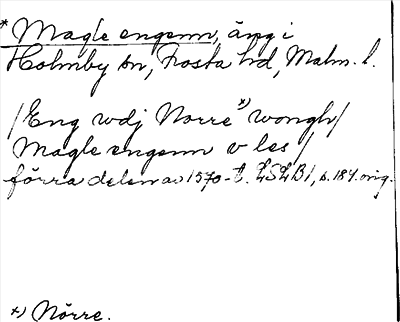 * Magle engenn, äng i
Holmby sn, Frosta hd, Malm. l.
/Eng wdj Norre *) wongh/
Magle engenn v les /
förra delen av 1570-t. LSLB1, s. 184 orig.
*) Nörre.